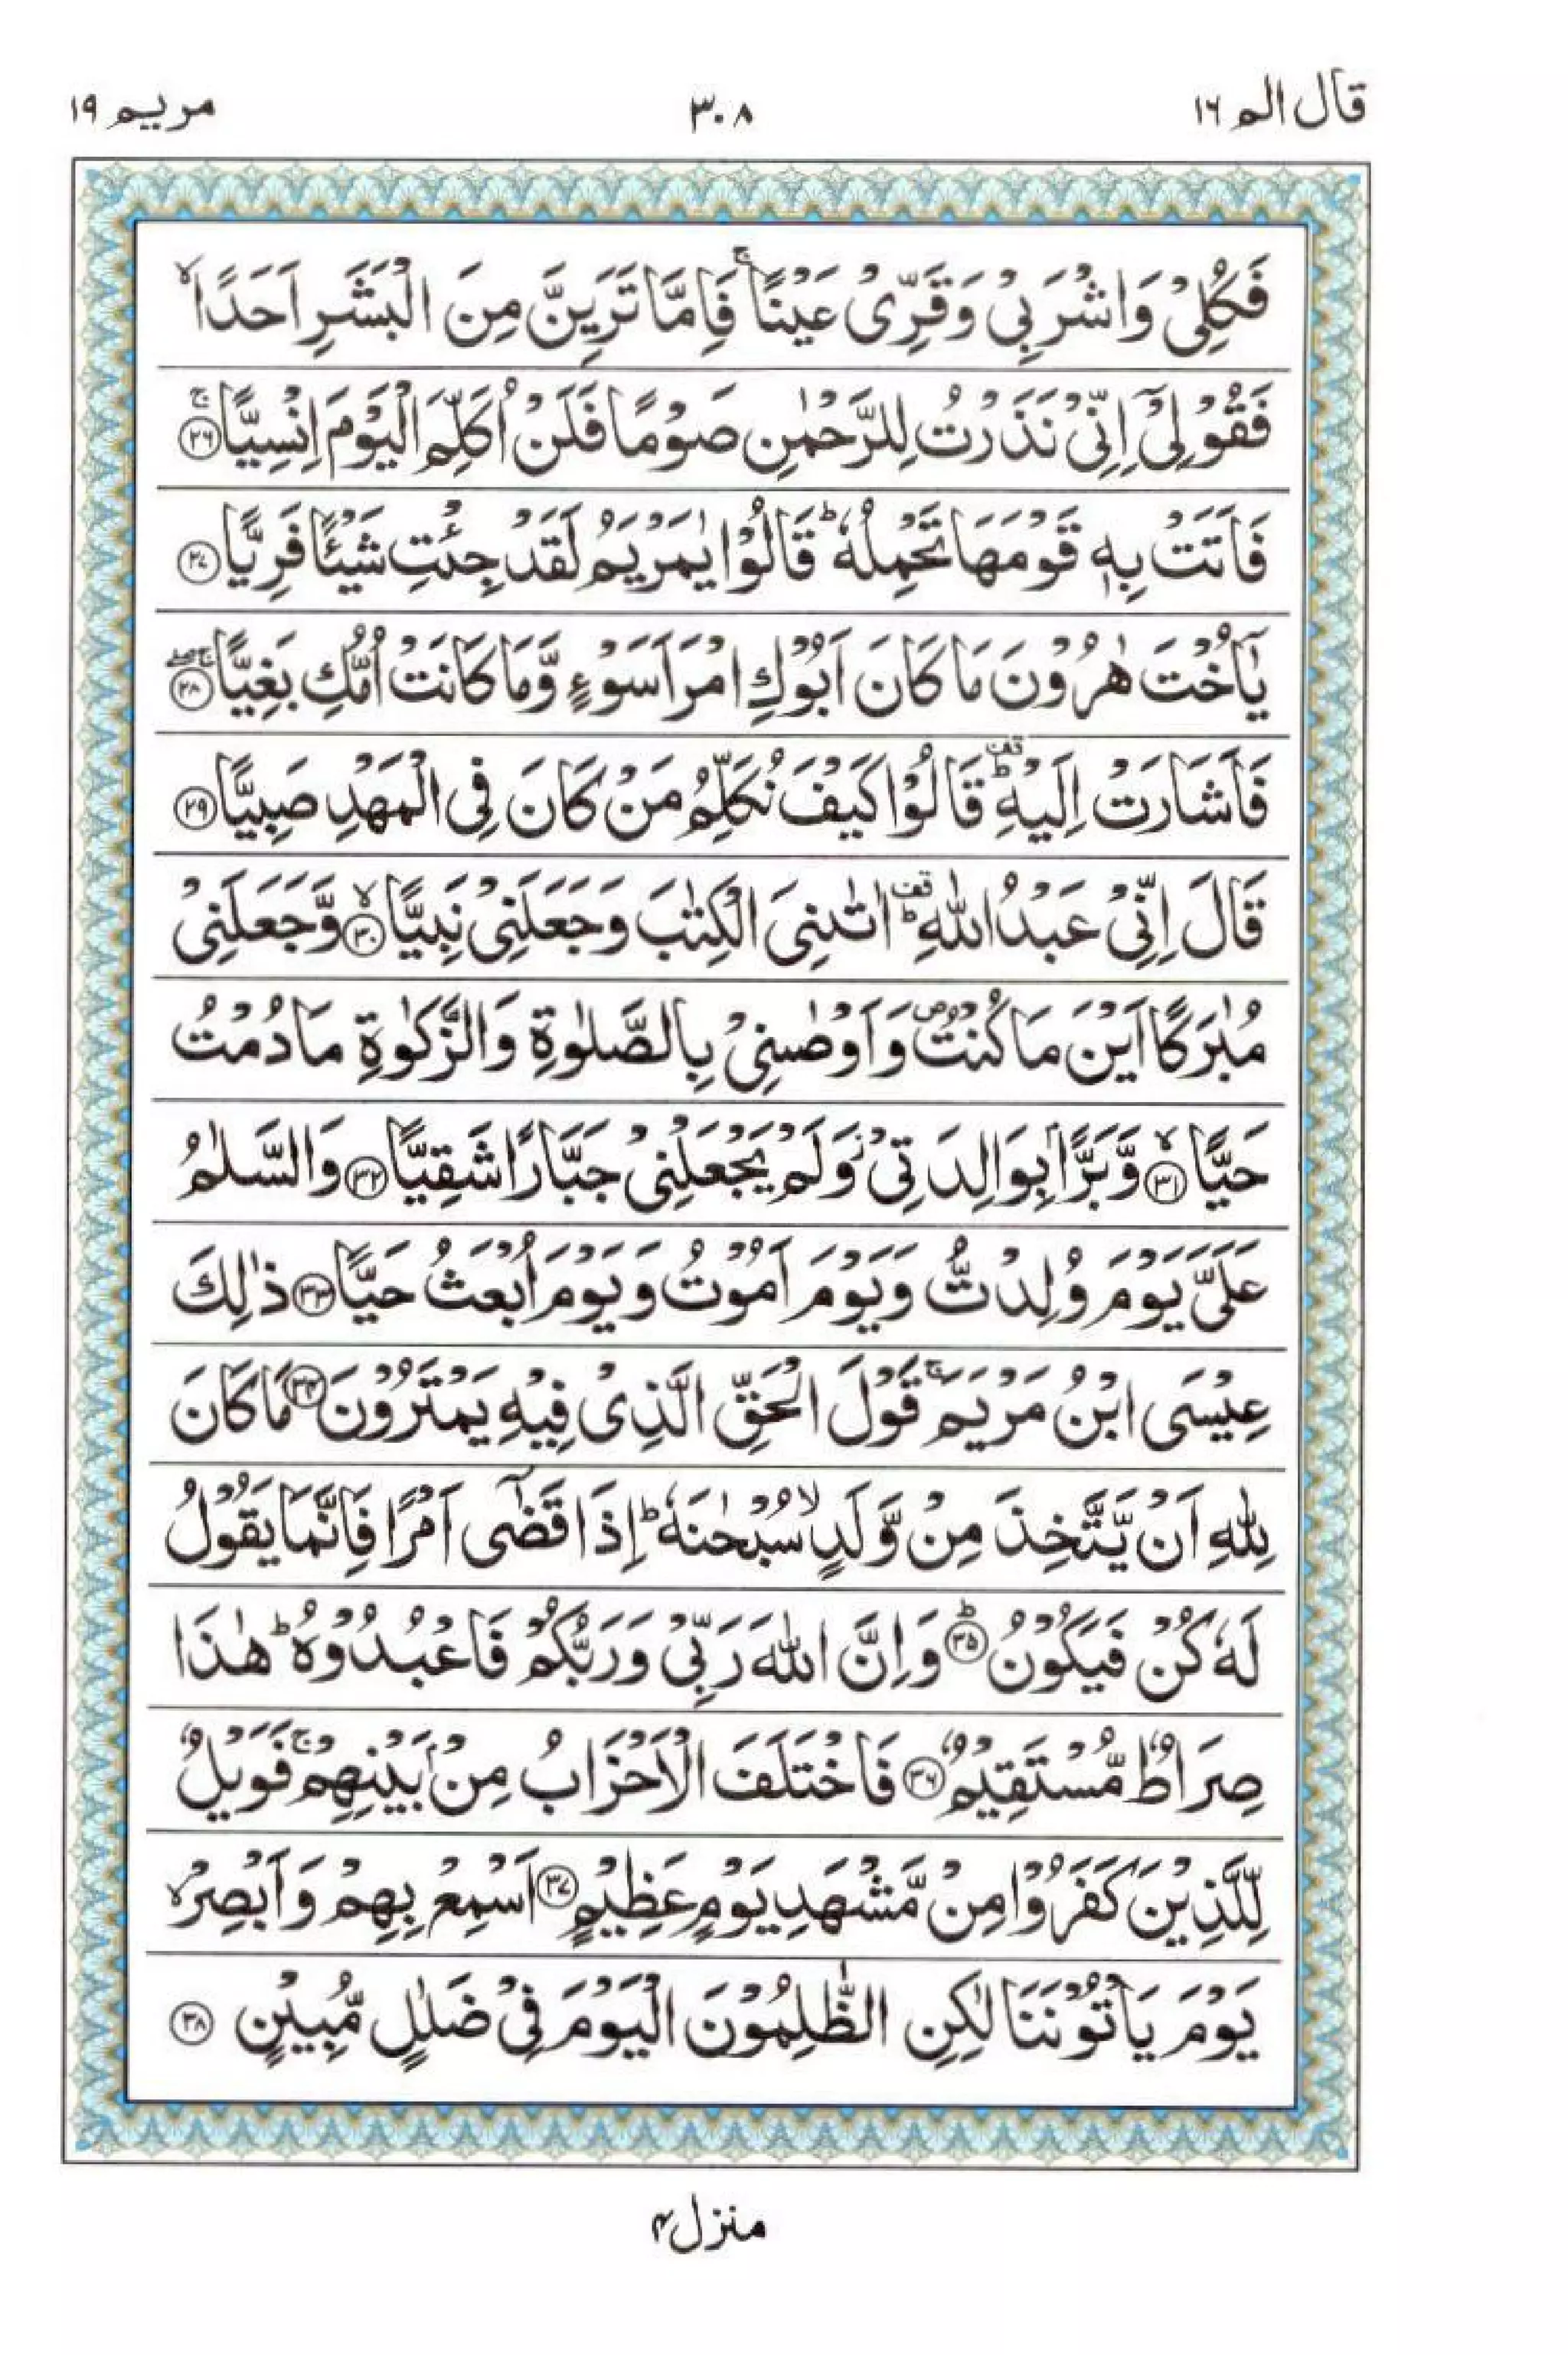 قال الم ١٦
٣٠٨
مریم ١٩
فَكُلِیْ وَاشْرَبِیْ وَقَرِّیْ عَیْنًا ۚ فَاِمَّا تَرَیِنَّ مِنَ الْبَشَرِ اَحَدًا ۙ
فَقُوْلِیْۤ اِنِّیْ نَذَرْتُ لِلرَّحْمٰنِ صَوْمًا فَلَنْ اُكَلِّمَ الْیَوْمَ اِنْسِیًّا ۚ ﴿٢٦﴾
فَاَتَتْ بِهٖ قَوْمَهَا تَحْمِلُهٗ ؕ قَالُوْا یٰمَرْیَمُ لَقَدْ جِئْتِ شَیْـًٔا فَرِیًّا ﴿٢٧﴾
یٰۤاُخْتَ هٰرُوْنَ مَا كَانَ اَبُوْكِ امْرَاَ سَوْءٍ وَّمَا كَانَتْ اُمُّكِ بَغِیًّا ۚۖ ﴿٢٨﴾
فَاَشَارَتْ اِلَیْهِ ؕ قف قَالُوْا كَیْفَ نُكَلِّمُ مَنْ كَانَ فِی الْمَهْدِ صَبِیًّا ﴿٢٩﴾
قَالَ اِنِّیْ عَبْدُ اللّٰهِ ؕ قف اٰتٰىنِیَ الْكِتٰبَ وَجَعَلَنِیْ نَبِیًّا ۙ ﴿٣٠﴾ وَّجَعَلَنِیْ
مُبٰرَكًا اَیْنَ مَا كُنْتُ ۪ وَاَوْصٰنِیْ بِالصَّلٰوةِ وَالزَّكٰوةِ مَا دُمْتُ
حَیًّا ۙ ﴿٣١﴾ وَّبَرًّۢا بِوَالِدَتِیْ ؗ وَلَمْ یَجْعَلْنِیْ جَبَّارًا شَقِیًّا ﴿٣٢﴾ وَالسَّلٰمُ
عَلَیَّ یَوْمَ وُلِدْتُّ وَیَوْمَ اَمُوْتُ وَیَوْمَ اُبْعَثُ حَیًّا ﴿٣٣﴾ ذٰلِكَ
عِیْسَی ابْنُ مَرْیَمَ ۚ قَوْلَ الْحَقِّ الَّذِیْ فِیْهِ یَمْتَرُوْنَ ﴿٣٤﴾ مَا كَانَ
لِلّٰهِ اَنْ یَّتَّخِذَ مِنْ وَّلَدٍ ۙ سُبْحٰنَهٗ ؕ اِذَا قَضٰۤی اَمْرًا فَاِنَّمَا یَقُوْلُ
لَهٗ كُنْ فَیَكُوْنُ ؕ ﴿٣٥﴾ وَاِنَّ اللّٰهَ رَبِّیْ وَرَبُّكُمْ فَاعْبُدُوْهُ ؕ هٰذَا
صِرَاطٌ مُّسْتَقِیْمٌ ﴿٣٦﴾ فَاخْتَلَفَ الْاَحْزَابُ مِنْۢ بَیْنِهِمْ ۚ فَوَیْلٌ
لِّلَّذِیْنَ كَفَرُوْا مِنْ مَّشْهَدِ یَوْمٍ عَظِیْمٍ ﴿٣٧﴾ اَسْمِعْ بِهِمْ وَاَبْصِرْ ۙ
یَوْمَ یَاْتُوْنَنَا لٰكِنِ الظّٰلِمُوْنَ الْیَوْمَ فِیْ ضَلٰلٍ مُّبِیْنٍ ﴿٣٨﴾
منزل ٤